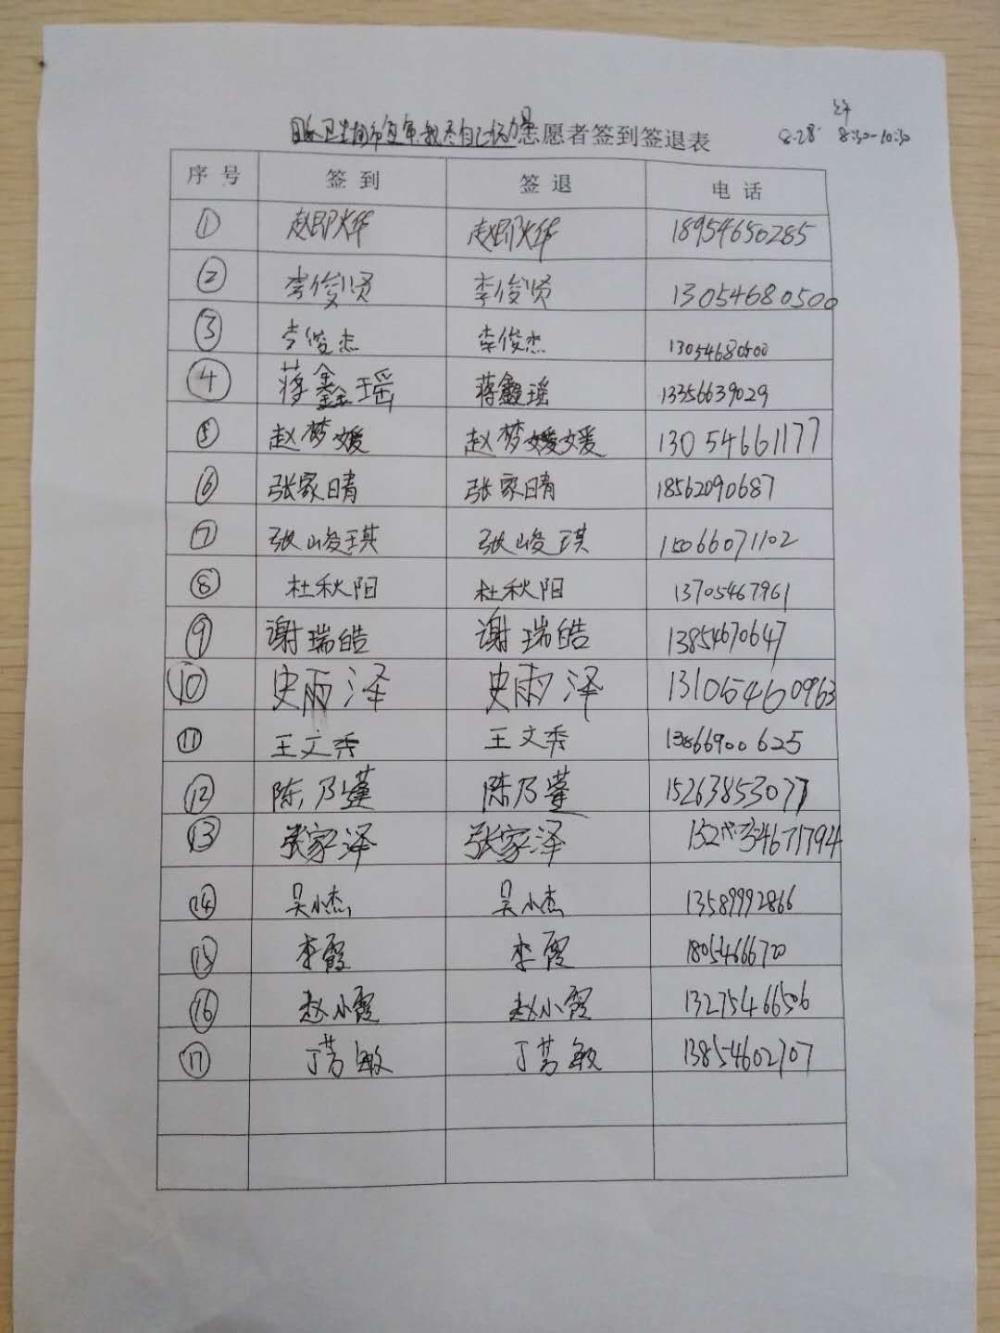 国家卫生城市复审我尽自己一份力量志愿者签到签退表
8.28 上午 8:30-10:30
序号 签到 签退 电话
① 赵即大华 赵即大华 18954650285
② 李俊贤 李俊贤 13054680500
③ 李俊杰 李俊杰 13054680500
④ 蒋鑫瑶 蒋鑫瑶 13356639029
⑤ 赵梦媛 赵梦媛媛 13054661177
⑥ 张家晴 张家晴 18562090687
⑦ 张峻琪 张峻琪 15066071102
⑧ 杜秋阳 杜秋阳 13705467961
⑨ 谢瑞皓 谢瑞皓 13854670647
⑩ 史雨泽 史雨泽 131065460963
⑪ 王文秀 王文秀 13866900625
⑫ 陈乃瑾 陈乃瑾 15263853077
⑬ 张家泽 张家泽
⑭ 吴小杰 吴小杰 13589992866
⑮ 李霞 李霞 18054666720
⑯ 赵小霞 赵小霞 13275466506
⑰ 丁茗敏 丁茗敏 13854602707